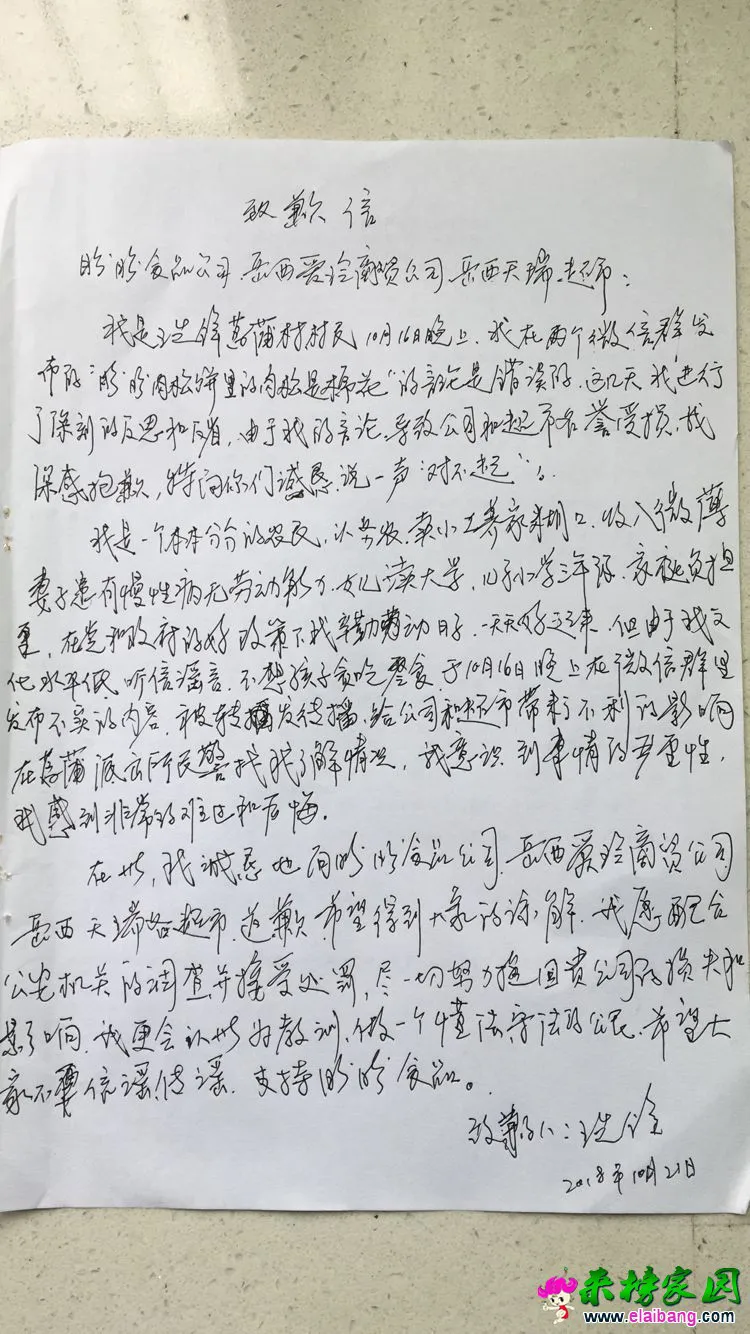 致歉信
盼盼食品公司、岳西爱玲商贸公司、岳西天瑞超市：
我是 菖蒲村村民 10月16日晚上、我在两个微信群发
布的“盼盼肉松饼里的肉松是棉花”的言论是错误的。这几天我进行
了深刻的反思和反省，由于我的言论、导致公司和超市名誉受损，我
深感抱歉，特向你们诚恳说一声“对不起”。
我是一个本本分分的农民，以务农、卖小工养家糊口、收入微薄
妻子患有慢性病无劳动能力、女儿读大学，儿子小学三年级、家庭负担
重，在党和政府的好政策下我辛勤劳动日子、一天天好过来、但由于我文
化水平低 听信谣言、不想孩子贪吃零食、于10月16日晚上在微信群里
发布不实的内容、被转播发传播、给公司和超市带来了不利的影响
在菖蒲派出所民警找我了解情况，我意识到事情的严重性，
我感到非常的难过和后悔。
在此，我诚恳地向盼盼食品公司、岳西爱玲商贸公司
岳西天瑞各超市、道歉、希望得到大家的谅解、我愿配合
公安机关的调查并接受处罚，尽一切努力挽回贵公司的损失和
影响、我更会以此为教训、做一个懂法守法的公民、希望大
家不要信谣传谣、支持盼盼食品。
致歉人：
2018年10月21日
来榜家园
www.elaibang.com